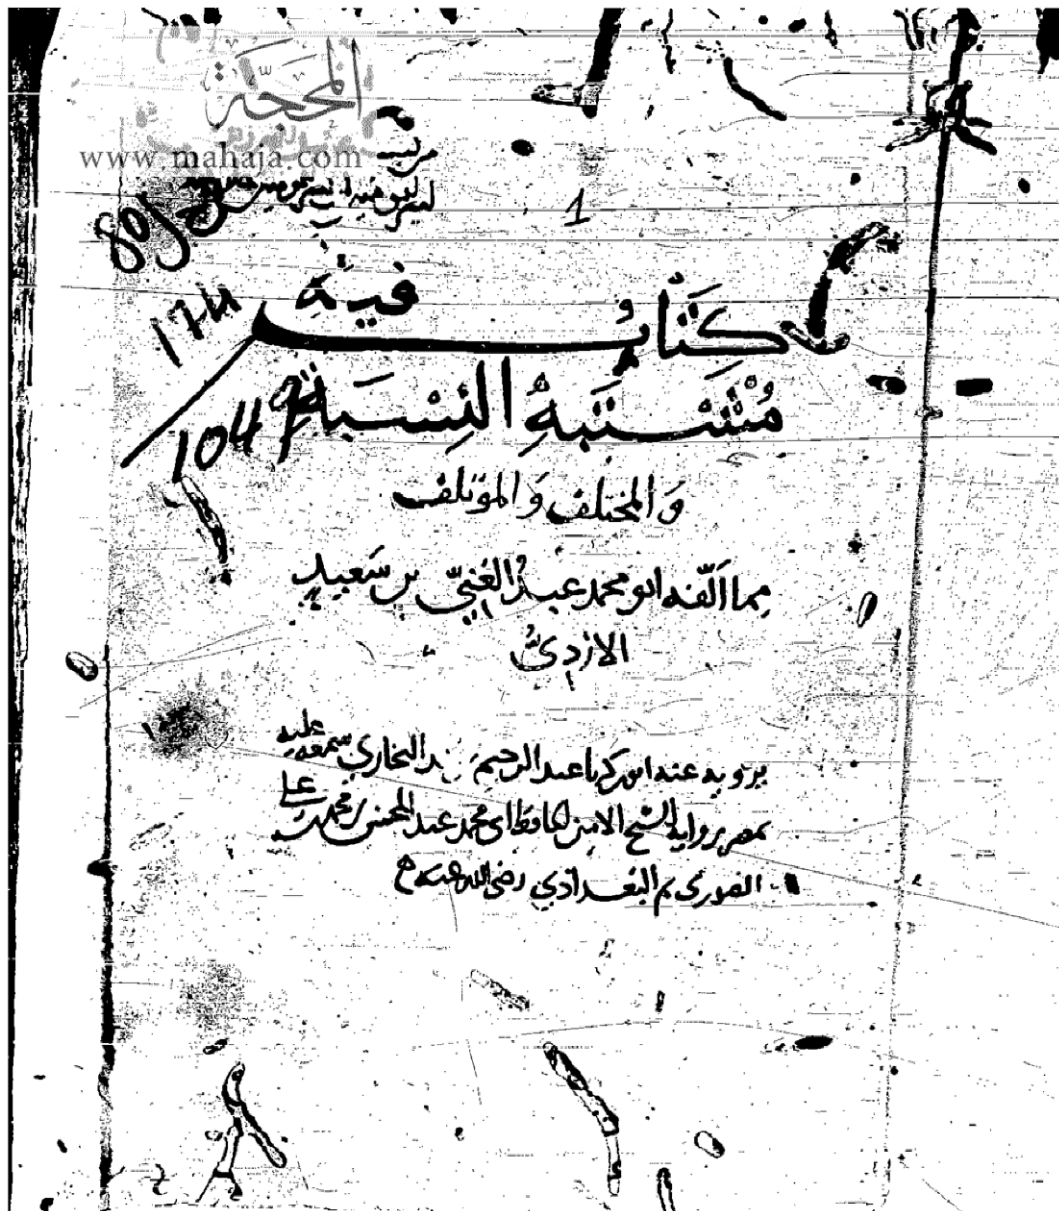 المحجة
www.mahaja.com
1
801
174
1049
كتاب فيه
مشتبه النسبة
والمختلف والمؤتلف
مما ألفه ابو محمد عبد الغني بن سعيد
الازدي
يرويه عنه ابو زكريا عبد الرحيم البخاري سمعه عليه
بمصر رواية الشيخ الامين الحافظ ابي محمد عبد المحسن بن محمد بن علي
الصوري ثم البغدادي رضي الله عنه